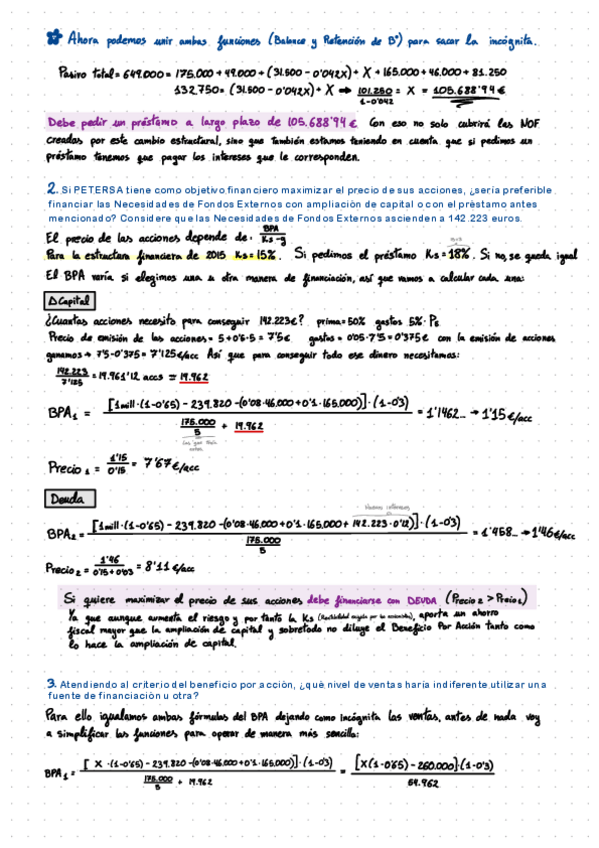 * Ahora podemos unir ambas funciones (Balance y Retención de Bº) para sacar la incógnita.
Pasivo total = 649.000 = 175.000 + 49.000 + (31.500 - 0'042X) + X + 165.000 + 46.000 + 81.250
132.750 = (31.500 - 0'042X) + X → 101.250 / 1-0'042 = X = 105.688'94 €
Debe pedir un préstamo a largo plazo de 105.688'94 €. Con eso no solo cubrirá las NOF
creadas por este cambio estructural, sino que también estamos teniendo en cuenta que si pedimos un
préstamo tenemos que pagar los intereses que le corresponden.
2. Si PETERSA tiene como objetivo financiero maximizar el precio de sus acciones, ¿sería preferible
financiar las Necesidades de Fondos Externos con ampliación de capital o con el préstamo antes
mencionado? Considere que las Necesidades de Fondos Externos ascienden a 142.223 euros.
El precio de las acciones depende de: BPA / Ks - g
Para la estructura financiera de 2015 Ks = 15%. Si pedimos el préstamo Ks = 18%. Si no, se queda igual
El BPA varía si elegimos una u otra manera de financiación, así que vamos a calcular cada una:
△Capital
¿Cuantas acciones necesito para conseguir 142.223€? prima = 50% gastos 5% · PE
Precio de emisión de las acciones = 5 + 0'5·5 = 7'5€ gastos = 0'05·7'5 = 0'375€ con la emisión de acciones
ganamos → 7'5 - 0'375 = 7'125€/acc Así que para conseguir todo ese dinero necesitamos:
142.223 / 7'125 = 19.961'12 accs = 19.962
BPA1 = [1mill·(1-0'65) - 239.820 - (0'08·46.000 + 0'1·165.000)]·(1-0'3) / 175.000 / 5 + 19.962 = 1'1462... → 1'15€/acc
Precio 1 = 1'15 / 0'15 = 7'67€/acc
Deuda
Nuevos intereses
BPA2 = [1mill·(1-0'65) - 239.820 - (0'08·46.000 + 0'1·165.000 + 142.223·0'12)]·(1-0'3) / 175.000 / 5 = 1'458... → 1'46€/acc
Precio 2 = 1'46 / 0'15 + 0'03 = 8'11 €/acc
Si quiere maximizar el precio de sus acciones debe financiarse con DEUDA (Precio 2 > Precio 1)
Ya que aunque aumenta el riesgo y por tanto la Ks (Rentabilidad exigida por los accionistas), aporta un ahorro
fiscal mayor que la ampliación de capital y sobretodo no diluye el Beneficio Por Acción tanto como
lo hace la ampliación de capital.
3. Atendiendo al criterio del beneficio por acción, ¿qué nivel de ventas haría indiferente utilizar una
fuente de financiación u otra?
Para ello igualamos ambas fórmulas del BPA dejando como incógnita las ventas, antes de nada voy
a simplificar las funciones para operar de manera más sencilla:
BPA1 = [X·(1-0'65) - 239.820 - (0'08·46.000 + 0'1·165.000)]·(1-0'3) / 175.000 / 5 + 19.962 = [X(1-0'65) - 260.000]·(1-0'3) / 54.962